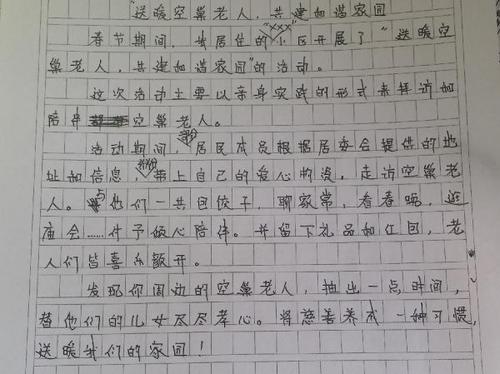 “送暖空巢老人，共建和谐家园
春节期间，我居住的“xxx”小区开展了“送暖空
巢老人，共建和谐家园”的活动。
这次活动主要以亲身实践的形式来拜访和
陪伴空巢老人。
活动期间，部分居民成员根据居委会提供的地
址和信息，带上自己的爱心物资，走访空巢老
人。与他们一共包饺子，聊家常，看春晚，逛
庙会……付予倾心陪伴。并留下礼品和红包，老
人们皆喜乐颜开。
发现你周边的空巢老人，抽出一点时间，
替他们的儿女尽尽孝心。将慈善养成一种习惯，
送暖我们的家园！